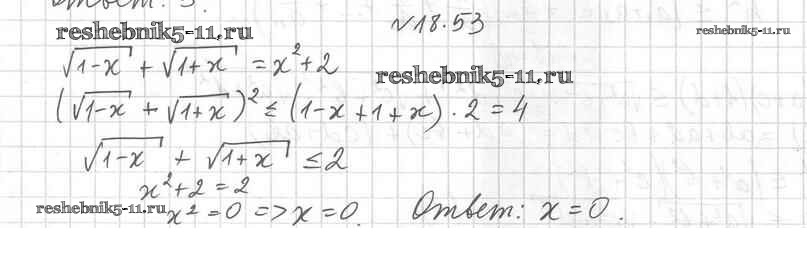 Ответ: 3.
reshebnik5-11.ru
№18.53
reshebnik5-11.ru
√(1-x) + √(1+x) = x² + 2
reshebnik5-11.ru
(√(1-x) + √(1+x))² ≤ (1-x+1+x)·2 = 4
√(1-x) + √(1+x) ≤ 2
x² + 2 = 2
reshebnik5-11.ru
x² = 0 => x = 0.
Ответ: x = 0.